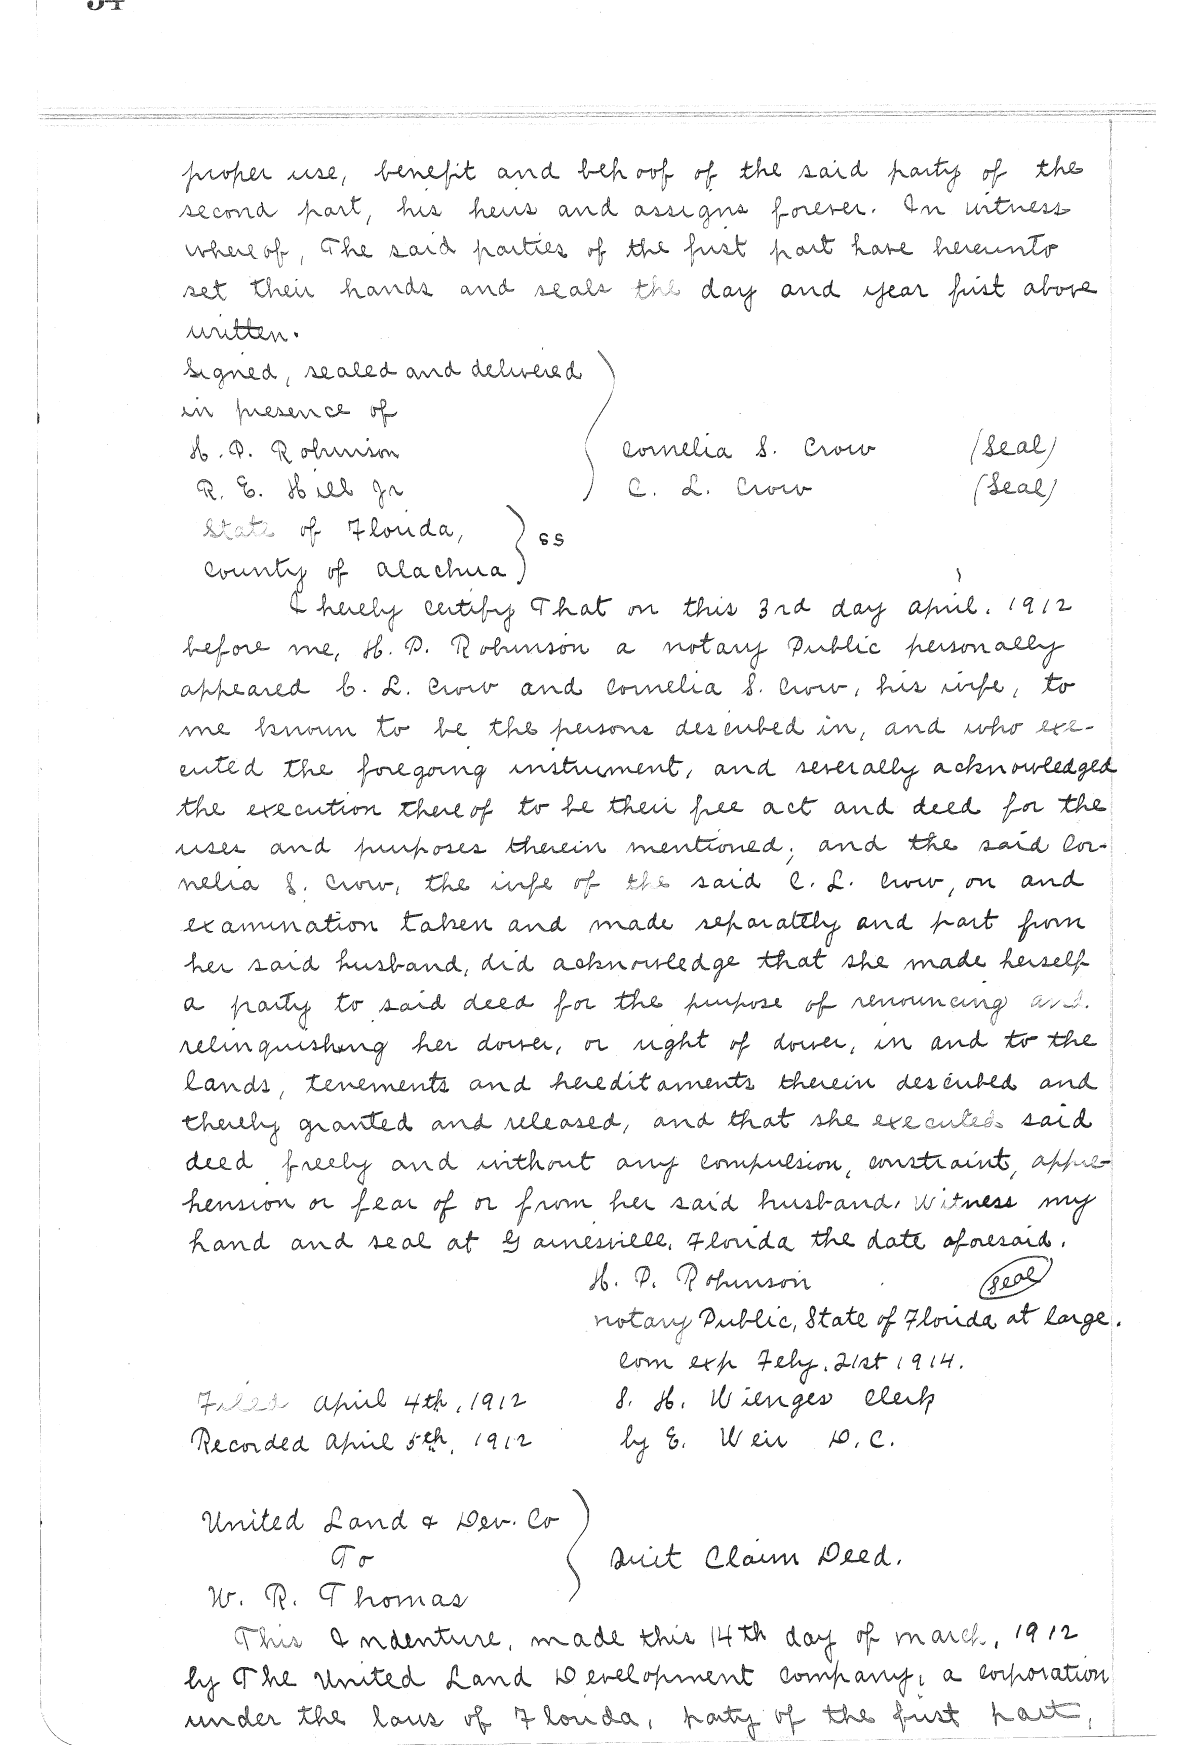 proper use, benefit and behoof of the said party of the
second part, his heirs and assigns forever. In witness
whereof, The said parties of the first part have hereunto
set their hands and seals the day and year first above
written.
Signed, sealed and delivered
in presence of
H. P. Robinson Cornelia S. Crow (Seal)
R. E. Hill Jr C. L. Crow (Seal)
State of Florida,
County of Alachua } SS
I hereby certify That on this 3rd day April, 1912
before me, H. P. Robinson a notary Public personally
appeared C. L. Crow and Cornelia S. Crow, his wife, to
me known to be the persons described in, and who exe-
cuted the foregoing instrument, and severally acknowledged
the execution thereof to be their free act and deed for the
uses and purposes therein mentioned; and the said Cor-
nelia S. Crow, the wife of the said C. L. Crow, on and
examination taken and made separattly and part from
her said husband, did acknowledge that she made herself
a party to said deed for the purpose of renouncing and
relinquishing her dower, or right of dower, in and to the
lands, tenements and hereditaments therein described and
thereby granted and released, and that she executed said
deed freely and without any compulsion, constraint, appre-
hension or fear of or from her said husband. Witness my
hand and seal at Gainesville, Florida the date aforesaid.
H. P. Robinson (Seal)
notary Public, State of Florida at large.
Com exp Feby. 21st 1914.
Filed April 4th, 1912 S. H. Wienges Clerk
Recorded April 5th, 1912 by E. Weir D.C.
United Land & Dev. Co
To } Quit Claim Deed.
W. R. Thomas
This Indenture, made this 14th day of march, 1912
by The United Land Development Company, a corporation
under the laws of Florida, party of the first part,